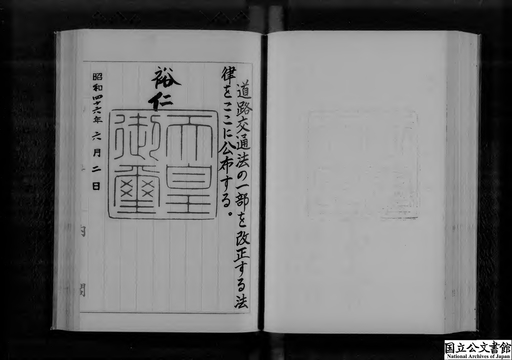 道路交通法の一部を改正する法
律をここに公布する。
裕仁
天皇
御璽
昭和四十六年六月二日
国立公文書館
National Archives of Japan